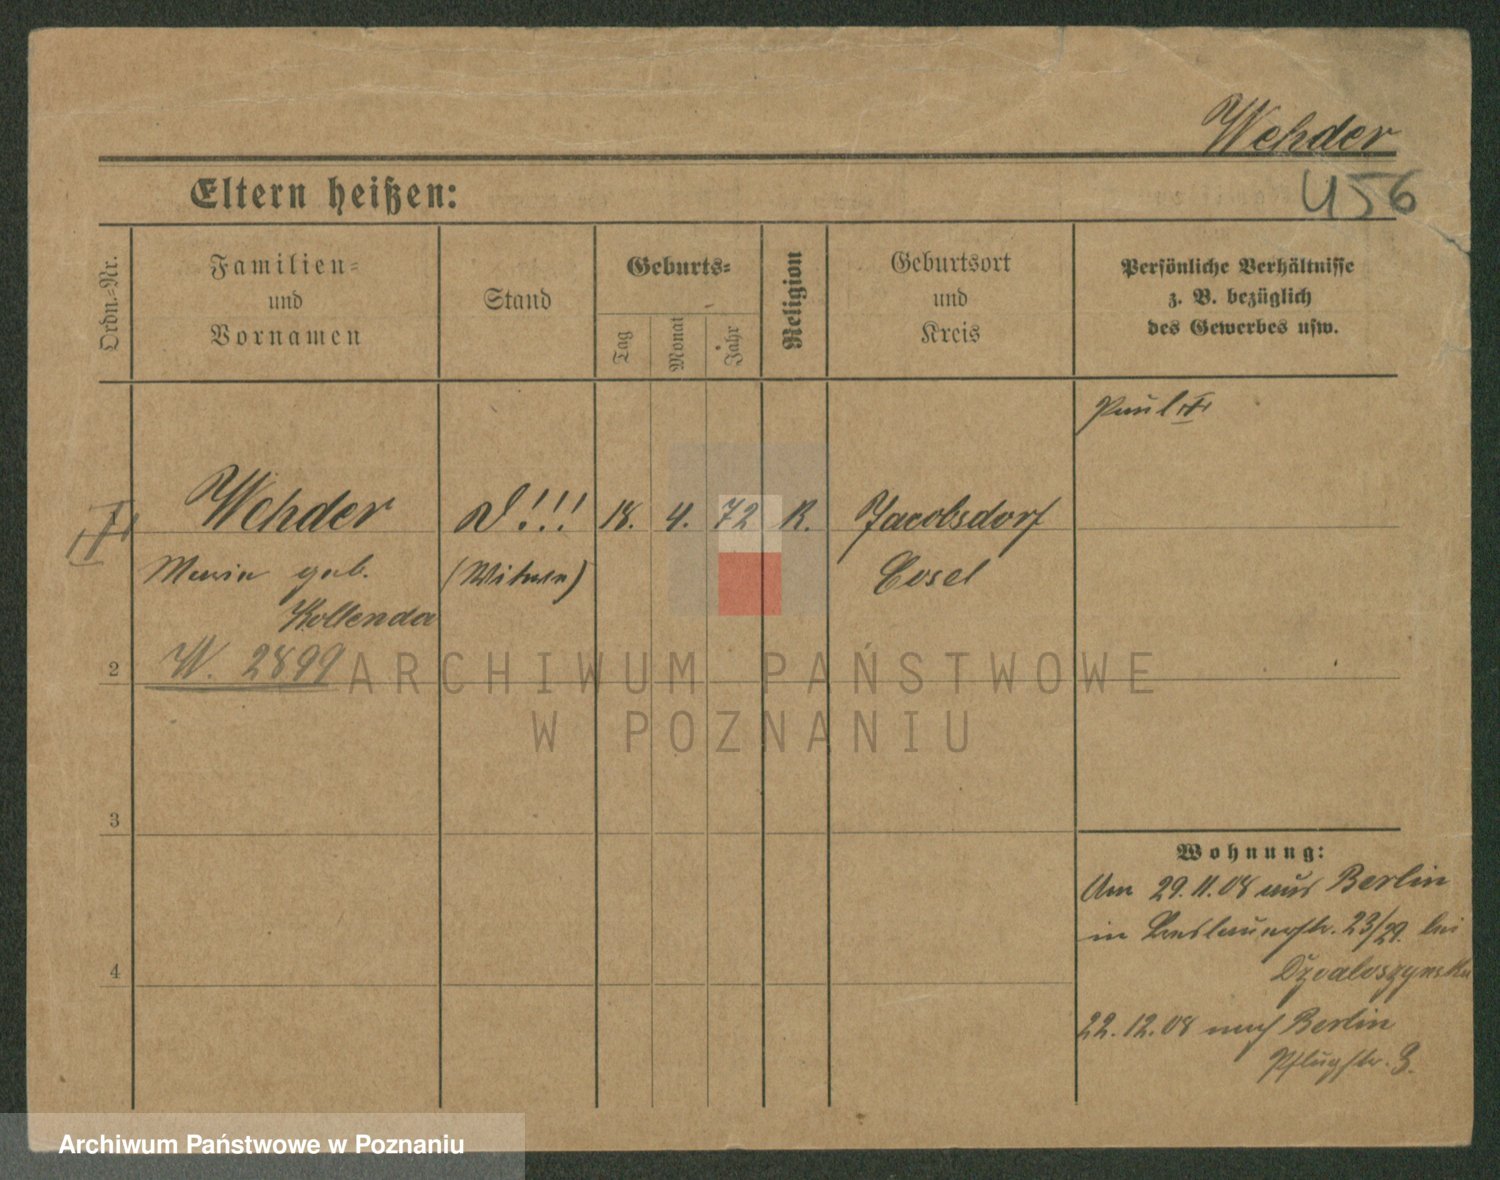 Wehder
456
Eltern heißen:
Ordn.-Nr.
Familien-
und
Vornamen
Stand
Geburts-
Tag
Monat
Jahr
Religion
Geburtsort
und
Kreis
Persönliche Verhältnisse
z. B. bezüglich
des Gewerbes usw.
Paul
Wehder
!!!
18.
4.
72
R.
Jacobsdorf
Maria geb.
(Witwe)
Cosel
Kollenda
2
W. 2899
ARCHIWUM PAŃSTWOWE
W POZNANIU
3
Wohnung:
Am 29.11.08 aus Berlin
in 23/29. bei
4
22.12.08 nach Berlin
Pflugstr. 3.
Archiwum Państwowe w Poznaniu